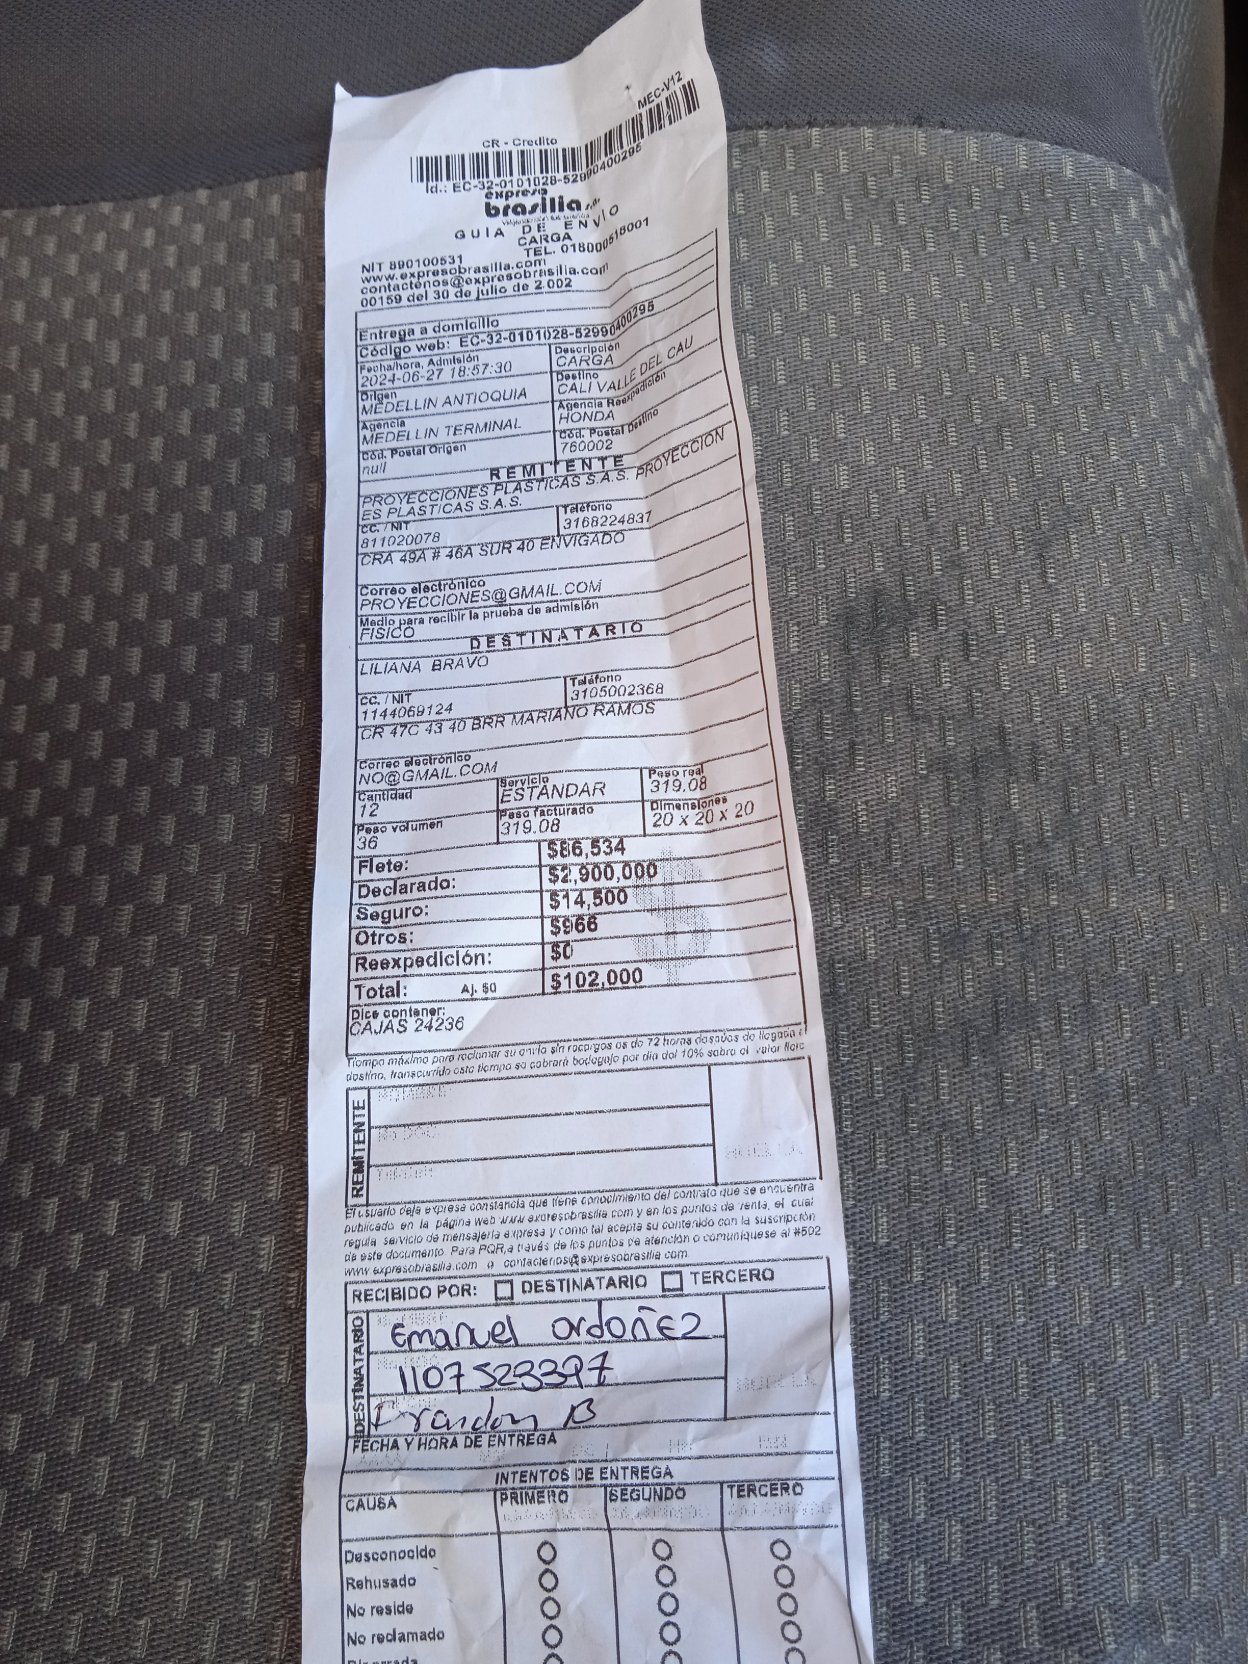 MEC-V12
CR - Credito
Id.: EC-32-0101028-52990400295
expreso
brasilia s.a.
GUIA DE ENVIO
CARGA
NIT 890100531 TEL. 018000518001
www.expresobrasilia.com
contactenos@expresobrasilia.com
00159 del 30 de julio de 2.002
Entrega a domicilio
Código web: EC-32-0101028-52990400295
Fecha/hora, Admisión Descripción
2024-06-27 18:57:30 CARGA
Origen Destino
MEDELLIN ANTIOQUIA CALI VALLE DEL CAU
Agencia Agencia Reexpedición
MEDELLIN TERMINAL HONDA
Cód. Postal Origen Cód. Postal Destino
null 760002
REMITENTE
PROYECCIONES PLASTICAS S.A.S. PROYECCION
ES PLASTICAS S.A.S.
CC. / NIT Teléfono
811020078 3168224837
CRA 49A # 46A SUR 40 ENVIGADO
Correo electrónico
PROYECCIONES@GMAIL.COM
Medio para recibir la prueba de admisión
FISICO
DESTINATARIO
LILIANA BRAVO
CC. / NIT Teléfono
1144069124 3105002368
CR 47C 43 40 BRR MARIANO RAMOS
Correo electrónico
NO@GMAIL.COM
Cantidad Servicio Peso real
12 ESTANDAR 319.08
Peso volumen Peso facturado Dimensiones
36 319.08 20 x 20 x 20
Flete: $86,534
Declarado: $2,900,000
Seguro: $14,500
Otros: $966
Reexpedición: $0
Total: Aj. $0 $102,000
Dice contener:
CAJAS 24236
Tiempo máximo para reclamar su envío sin recargos es de 72 horas después de llegada a
destino, transcurrido este tiempo se cobrará bodegaje por día del 10% sobre el valor flete
REMITENTE
NOMBRE
No DOC.
HUELLA
El usuario deja expresa constancia que tiene conocimiento del contrato que se encuentra
publicado en la página web www.expresobrasilia.com y en los puntos de venta, el cual
regula servicio de mensajería expresa y como tal acepta su contenido con la suscripción
de este documento. Para PQR,a través de los puntos de atención o comuníquese al #502
www.expresobrasilia.com o contactenos@expresobrasilia.com
RECIBIDO POR: DESTINATARIO TERCERO
DESTINATARIO
Emanuel ordoñez
1107523397
Brandon B
HUELLA
FECHA Y HORA DE ENTREGA
INTENTOS DE ENTREGA
CAUSA PRIMERO SEGUNDO TERCERO
Desconocido
Rehusado
No reside
No reclamado